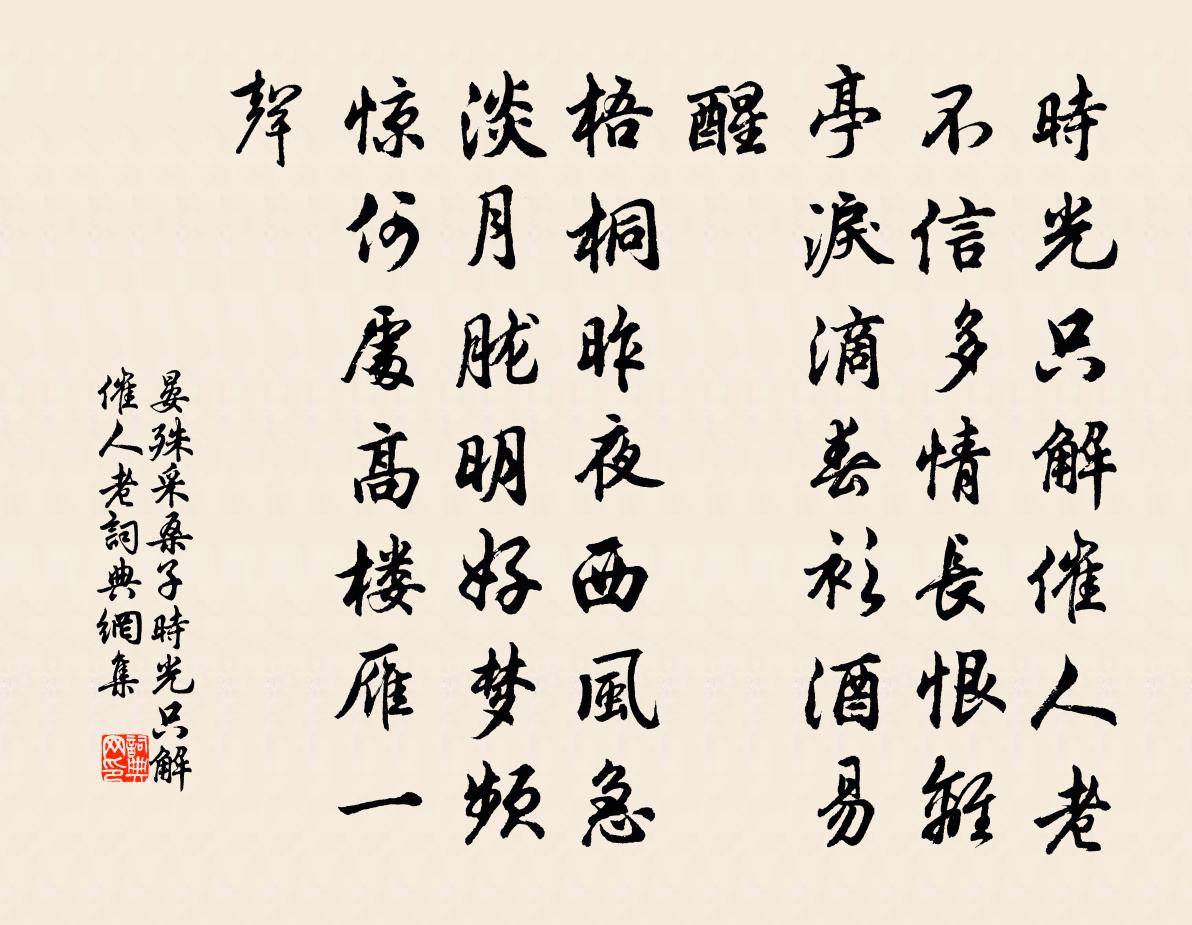 時光只解催人老
不信多情長恨離
亭淚滴春衫酒易
醒
梧桐昨夜西風急
淡月胧明好梦頻
惊何處高楼雁一
聲
晏殊采桑子時光只解
催人老詞典網集
詞典
网印